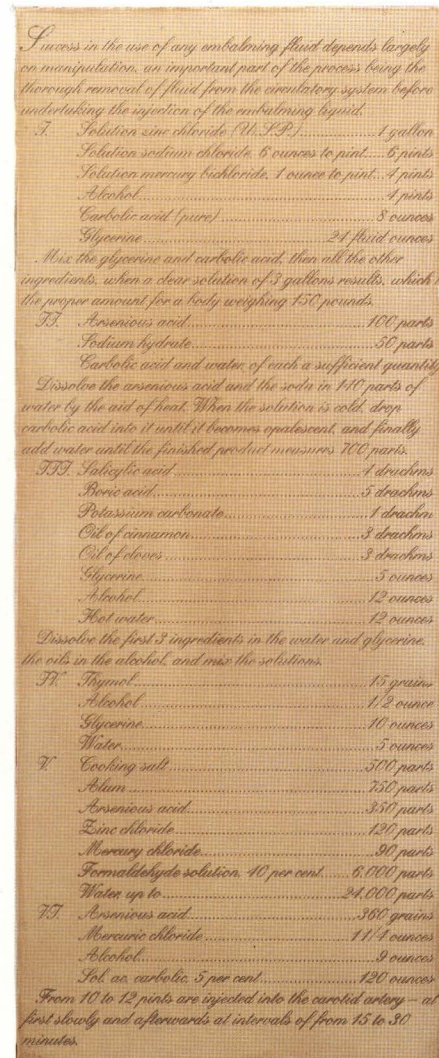 Sucess in the use of any embalming fluid depends largely
on manipulation, an important part of the process being the
thorough removal of fluid from the circulatory system before
undertaking the injection of the embalming liquid.
I. Solution zinc chloride (U.S.P.)..........1 gallon
Solution sodium chloride, 6 ounces to pint.....6 pints
Solution mercury bichloride, 1 ounce to pint...4 pints
Alcohol..........4 pints
Carbolic acid (pure)..........8 ounces
Glycerine..........24 fluid ounces
Mix the glycerine and carbolic acid, then all the other
ingredients, when a clear solution of 3 gallons results, which i
the proper amount for a body weighing 150 pounds.
II. Arsenious acid..........100 parts
Sodium hydrate..........50 parts
Carbolic acid and water, of each a sufficient quantity
Dissolve the arsenious acid and the soda in 140 parts of
water by the aid of heat. When the solution is cold, drop
carbolic acid into it until it becomes opalescent, and finally
add water until the finished product measures 700 parts.
III. Salicylic acid..........4 drachms
Boric acid..........5 drachms
Potassium carbonate..........1 drachm
Oil of cinnamon..........3 drachms
Oil of cloves..........3 drachms
Glycerine..........5 ounces
Alcohol..........12 ounces
Hot water..........12 ounces
Dissolve the first 3 ingredients in the water and glycerine,
the oils in the alcohol, and mix the solutions.
IV. Thymol..........15 grains
Alcohol..........1/2 ounce
Glycerine..........10 ounces
Water..........5 ounces
V. Cooking salt..........500 parts
Alum..........750 parts
Arsenious acid..........350 parts
Zinc chloride..........120 parts
Mercury chloride..........90 parts
Formaldehyde solution, 40 per cent.....6,000 parts
Water, up to..........24,000 parts
VI. Arsenious acid..........360 grains
Mercuric chloride..........1 1/4 ounces
Alcohol..........9 ounces
Sol. ac. carbolic, 5 per cent..........120 ounces
From 10 to 12 pints are injected into the carotid artery – at
first slowly and afterwards at intervals of from 15 to 30
minutes.